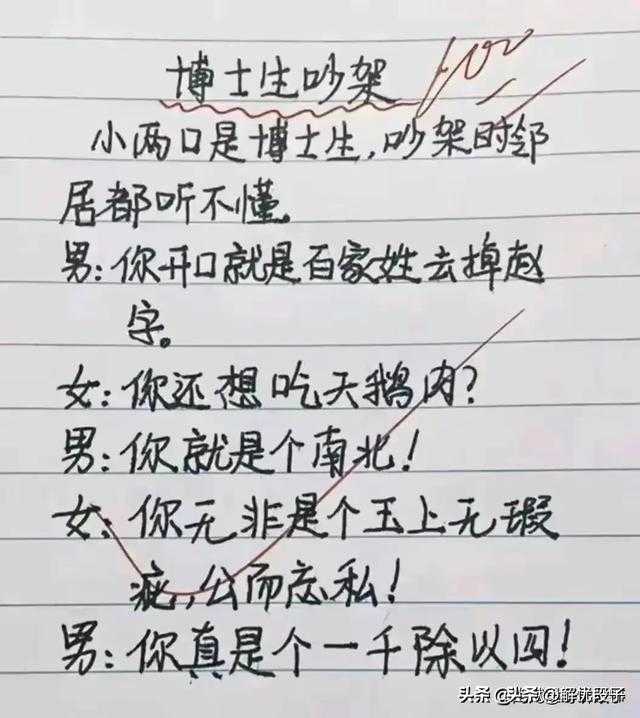 博士生吵架 100
小两口是博士生,吵架时邻
居都听不懂。
男:你开口就是百家姓去掉赵
字。
女:你还想吃天鹅肉?
男:你就是个南北!
女:你无非是个玉上无瑕
疵,公而忘私!
男:你真是个一千除以四!
头条@解忧段子